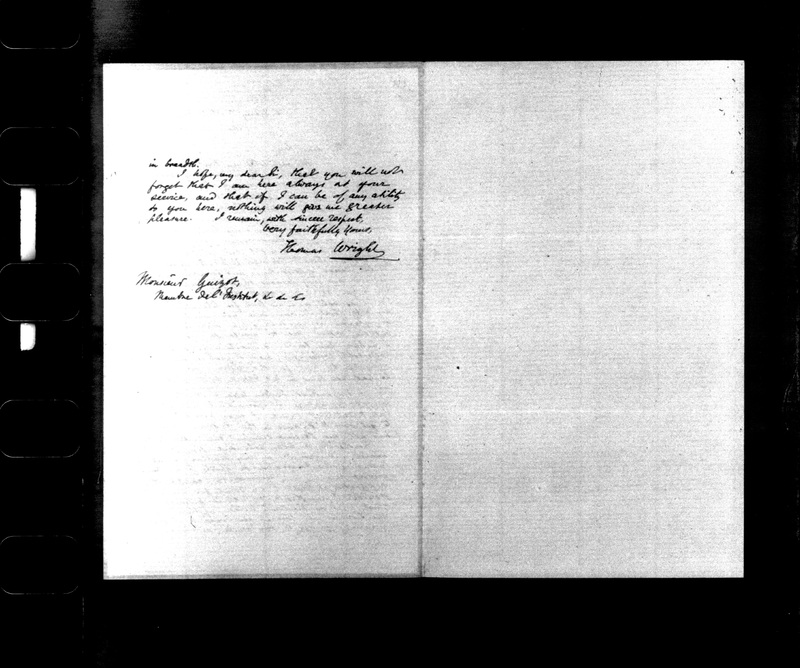 in breadth.
I hope, my dear Sir, that you will not
forget that I am here always at your
service, and that if I can be of any utility
to you here, nothing will give me greater
pleasure. I remain, with sincere respect,
Very faithfully yours,
Thomas Wright
Monsieur Guizot,
Membre de l'Institut, &c &c &c